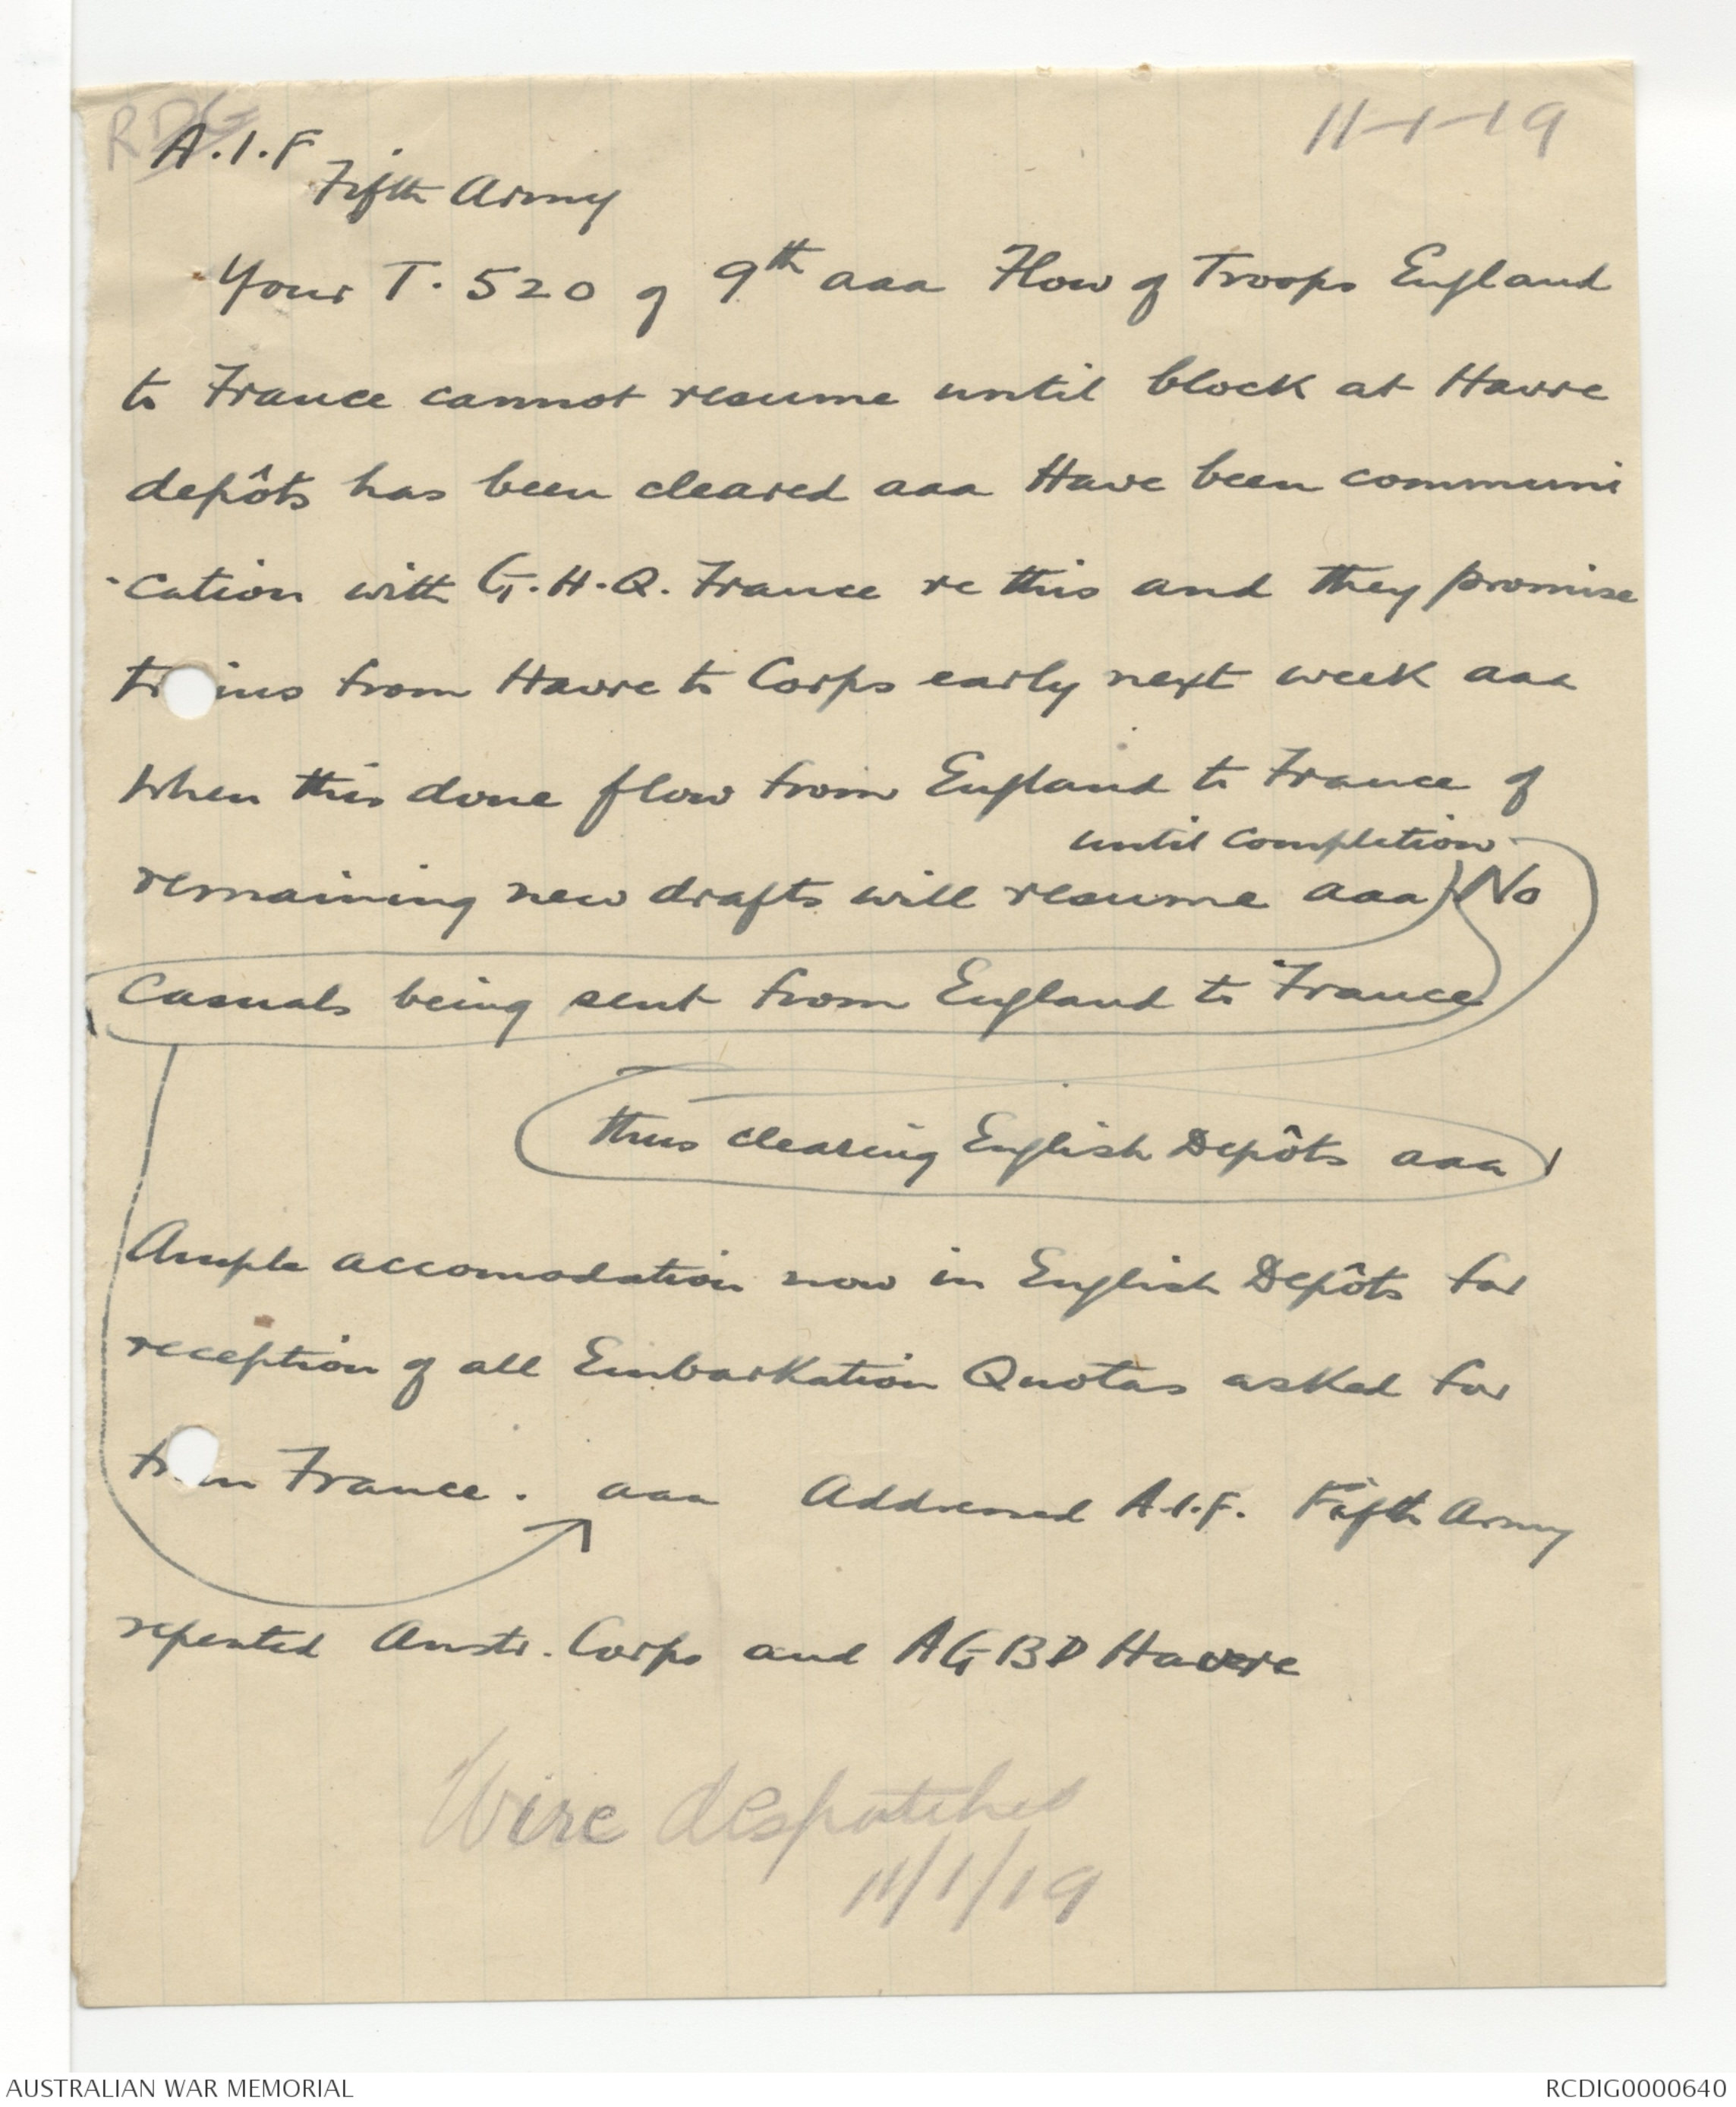 RDG
11-1-19
A.I.F
Fifth Army
Your T. 520 of 9th aaa Flow of Troops England
to France cannot resume until block at Havre
depôts has been cleared aaa Have been communi
-cation with G.H.Q. France re this and they promise
tr ins from Havre to Corps early next week aaa
When this done flow from England to France of
until completion
remaining new drafts will resume aaa No
Casuals being sent from England to France
thus clearing English Depôts aaa
Ample accomodation now in English Depôts for
reception of all Embarkation Quotas asked for
fr m France. aaa Addressed A.I.F. Fifth Army
repeated Austr. Corps and AGBD Havre
Wire despatched
11/1/19
AUSTRALIAN WAR MEMORIAL
RCDIG0000640